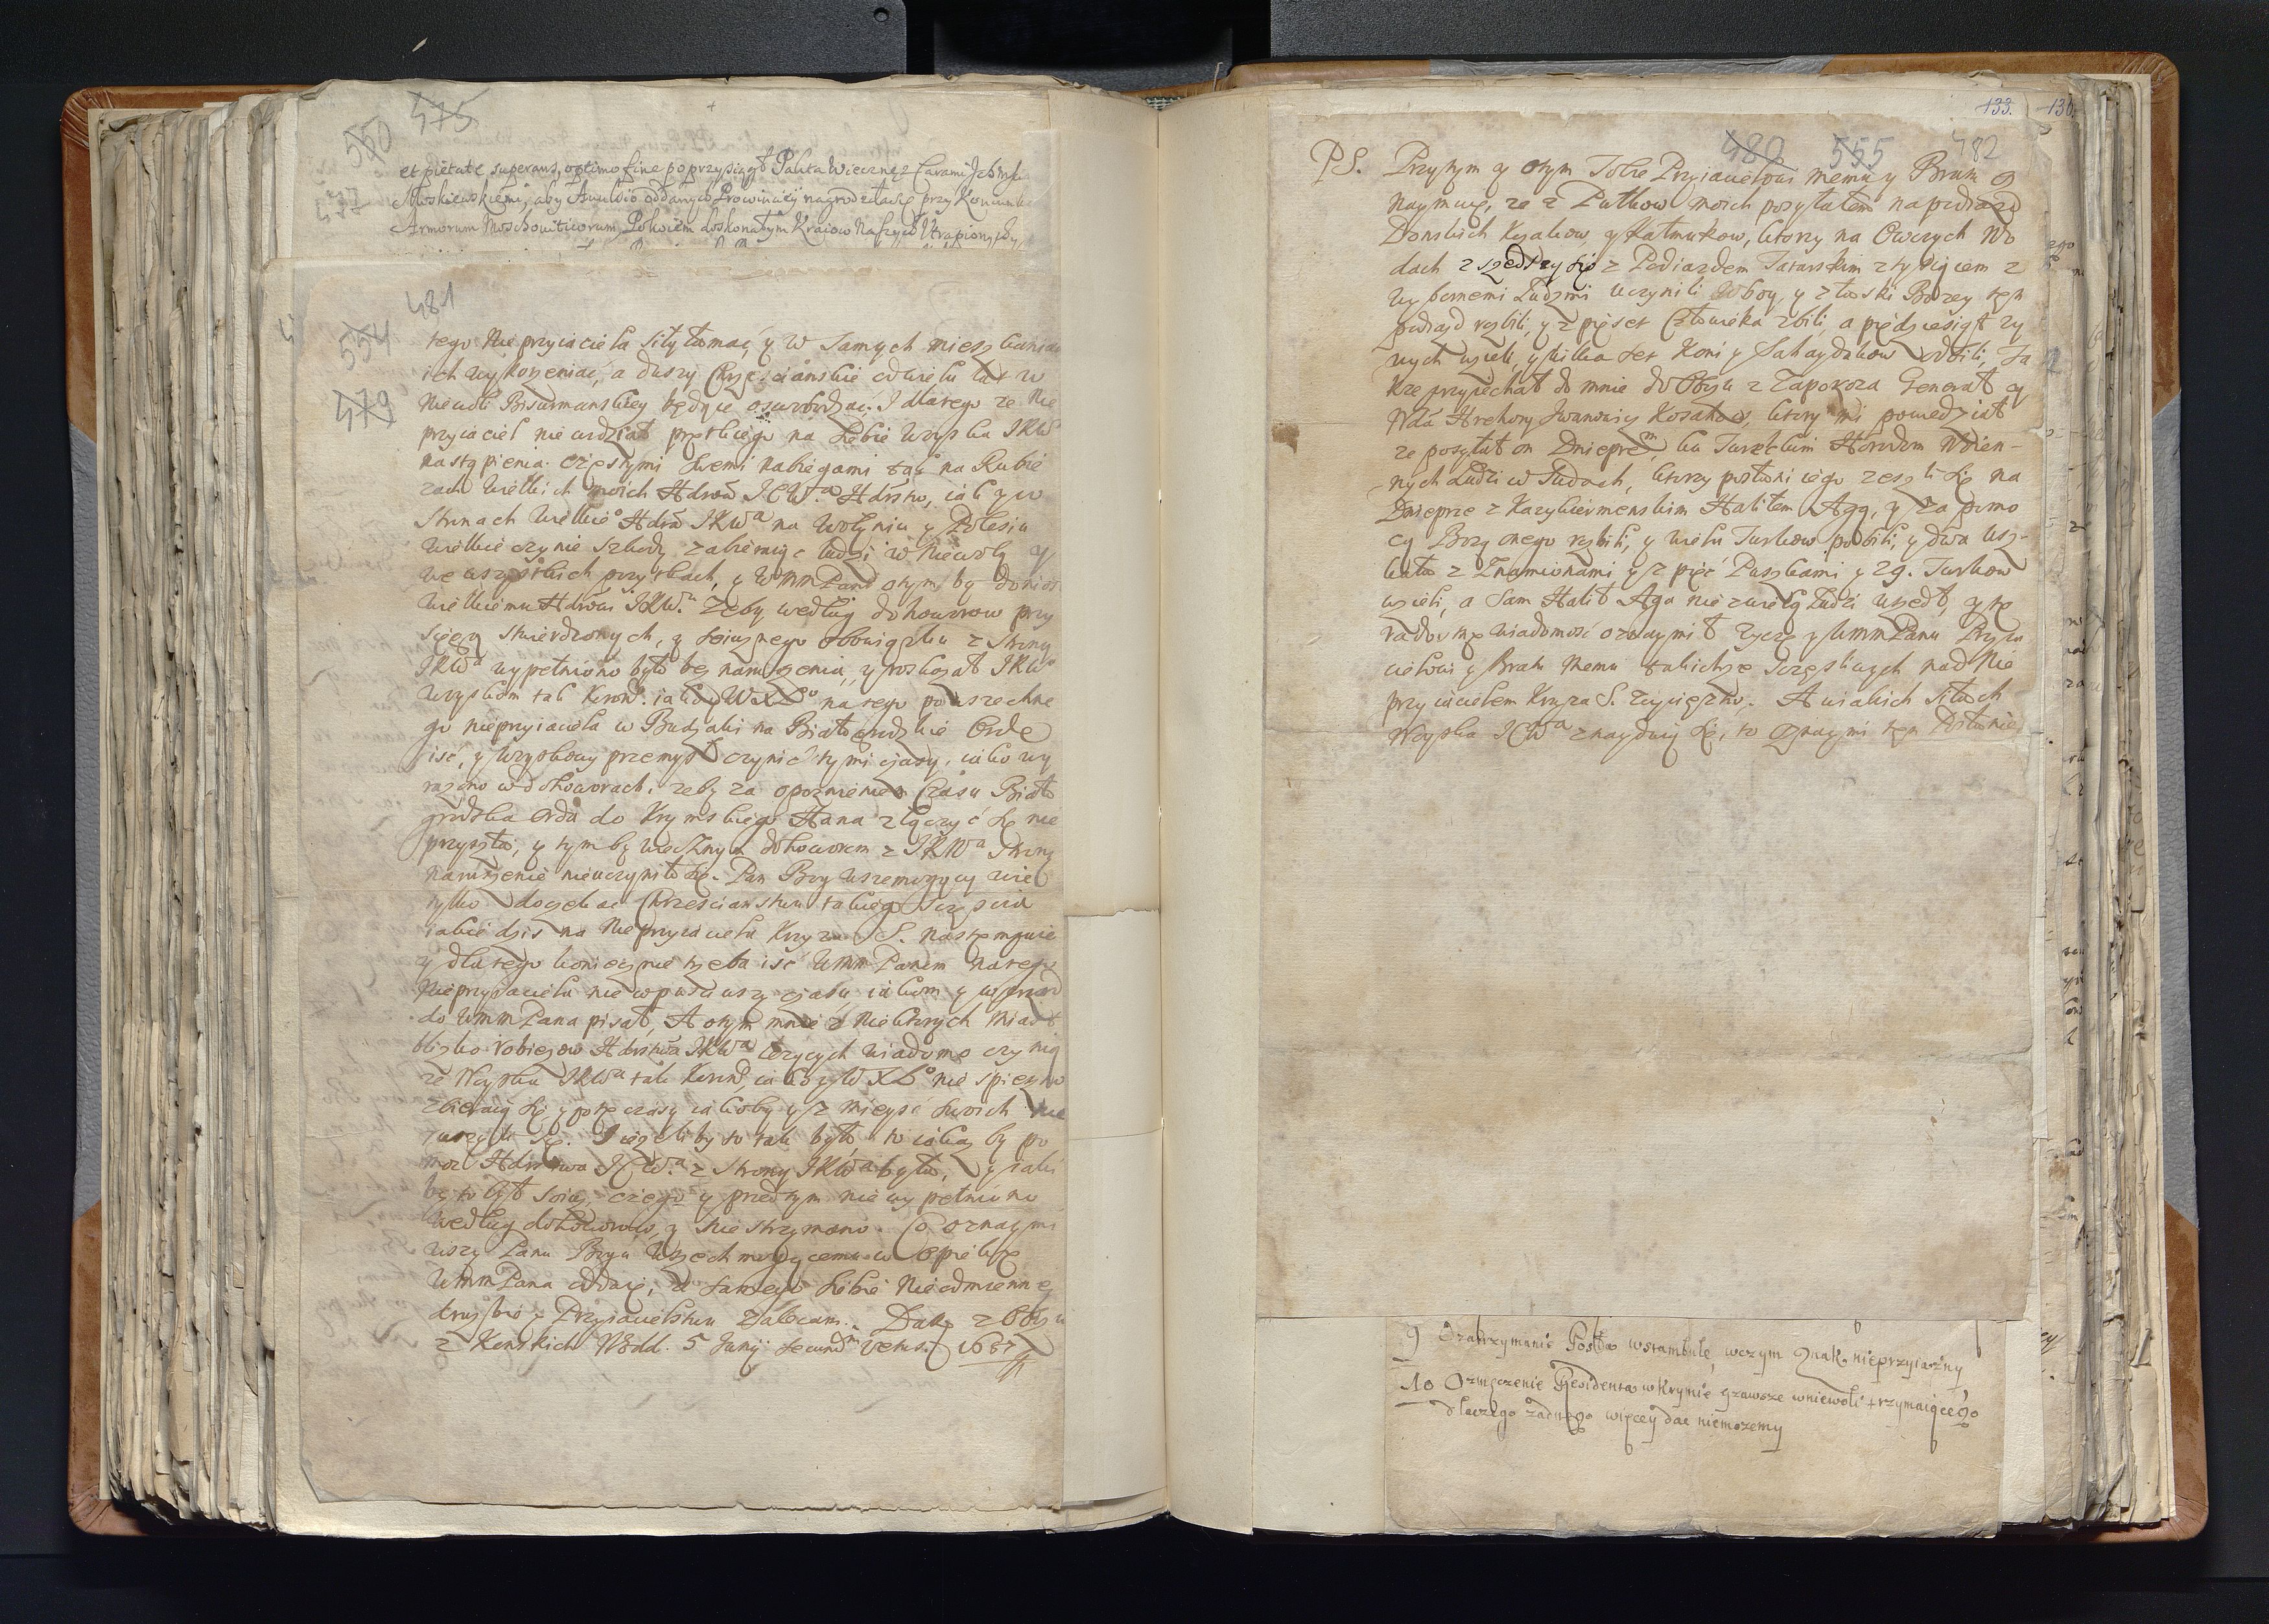 550 475
et pietate superans, optimo fine poprzysiągł Pakta Wieczne z Carami Ichmscią
Moskiewskiemi, aby Auulsio oddanych Prowincÿÿ nagrodziła się przy Koniunkc
Armorum Moschouiticorum, Pokoiem doskonałym Kraiow Naszych Utrapionych
477
481
554
479
tego Nieprzyiaciela siły łamać, y w samych mieszkaniach
ich wykorzeniać, a duszy Chrzescianskie od wielu lat w
Niewoli Bisurmanskiey będące oswobodzać. I dlatego ze Nie
przyiaciel nie widział prętkiego na siebie Woyska IKW
nastąpienia. częstymi swemi nabiegami tak na Rubie
zach wielkich moich Hdrow ICW.ª Hdrstw, iak y w
Stronach Wielkieº Hdra IKWª na Wołyniu y Polesiu
wielkie czynie szkody zabieraiąc ludzi w Niewolą y
we wszystkich przytkach, y WMMPan o tym by doniosł
Wielkiemu Hdrowi IKW.ª Zeby według dohoworow przy
sięgą stwierdzonych, y soiusznego obowiązku z Strony
IKWª wypełniono było bez naruszenia, y roskazał IKWª
Woyskom tak Koron. iak y WXLº na tego powszechne
go nieprzyiaciela w Budziaki na Białogrodzkie Orde
isć, y Woyskowy przemysł czynić tymi czasy, iako wy
razono w dohoworach. zeby za opoznieniem Czasu Biało
grodzka Orda do Krymskiego Hana złączyć się nie
przyszła, y tym by wiecznym dohoworem z IKWª Strony
naruszenie nieuczyniło się. Pan Bog wszemogący wie
tylko doczekac Chrzescianstwu takiego szczęscia
iakie dzis na Nieprzyiaciela Krzyza S. następuie
y dlatego koniecznie trzeba isć WMM Panem na tego
Nieprzyiaciela nie wpusciwszy czasu iakom y wprzod
do WMMPana pisał, A o tym mnie z Niektorych Miast
blizko robiezow Hdrstwa IKWª lezących wiadomo czynią
ze Woyska IKWª tak Koron iako y WXLº nie spieszno
zbieraią się y po te czasy iakoby y z mieysc swoich nie
ruszyli się. Iezeliby to tak było, to iakaz by po
moc Hdrstwa ICW.ª z Strony IKWª była, y iaki
by to był soiuz, czego y przedtym nie wypełniono
według dohoworow, y nie strzymano. Co oznaymi
wszy Panu Bogu Wszechmogącemu w Opiekę
WMMPana oddaię, a samego siebie Nieodmienney
druzbie y Przyiacielstwu Zalecam. Dato z Obozu
z Konskich Wod d. 5 Junij secundm vetus. 1687
133. 130.
480 555 482
PS. Przytym y o tym Tobie Przyiacielowi memu y Bratu o
naymuię, ze z Pułkow moich posyłałem na podiazd
Donskich Kozakow y Kałmukow, ktorzy na Owczych Wo
dach zszedszy się z Podiazdem Tatarskim z tysiącem z
wybornemi Ludzmi uczynili Boy, y z łaski Bozey ten
podiazd rozbili, y z pięset Człowieka zbili, a piędziesiąt zy
wych wzieli, y kilka set Koni y Sahaydakow odbili, Ta
kze przyiechał do mnie do Obozu z Zaporoza Generał y
Wda Hrehory Iwanowicz Kosahow, ktory mi powiedział
ze posyłał on Dnieprem ku Tureckim Horodom Woien-
nych Ludzi w Sudach, ktorzy posłani iego zeszli się na
Dnieprze z Kazykiermenskim Halitem Agą, y za pomo
cą Bozą onego rozbili, y wielu Turkow pobili, y dwa Usz-
kała z Znamionami, y z pięć Puszkami y 29. Turkow
wzieli, a sam Halit Aga nie z wielą Ludzi uszedł, y tę
radosną wiadomosć oznaymił zyczę y WMMPanu Przyia
cielowi y Bratu Memu takichze szczęsliwych nad Nie
przyiacielem Krzyza S. zwycięztw. A w iakich siłach
Woyska ICWª znayduią się, to oznaymi ten Posłaniec
9 O zatrzymanie Posła w Stambule, w czym Znak nieprzyiaźny
10 O zmęczenie Residenta w Krymie y zawsze w niewoli trzymaiącego
dlaczego zadnego więcey dac niemozemy